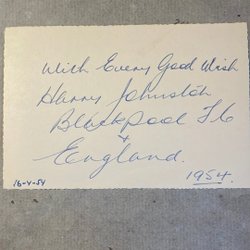 With Every Good Wish
Harry Johnston
Blackpool F.C
&
England.
1954.
16-4-54